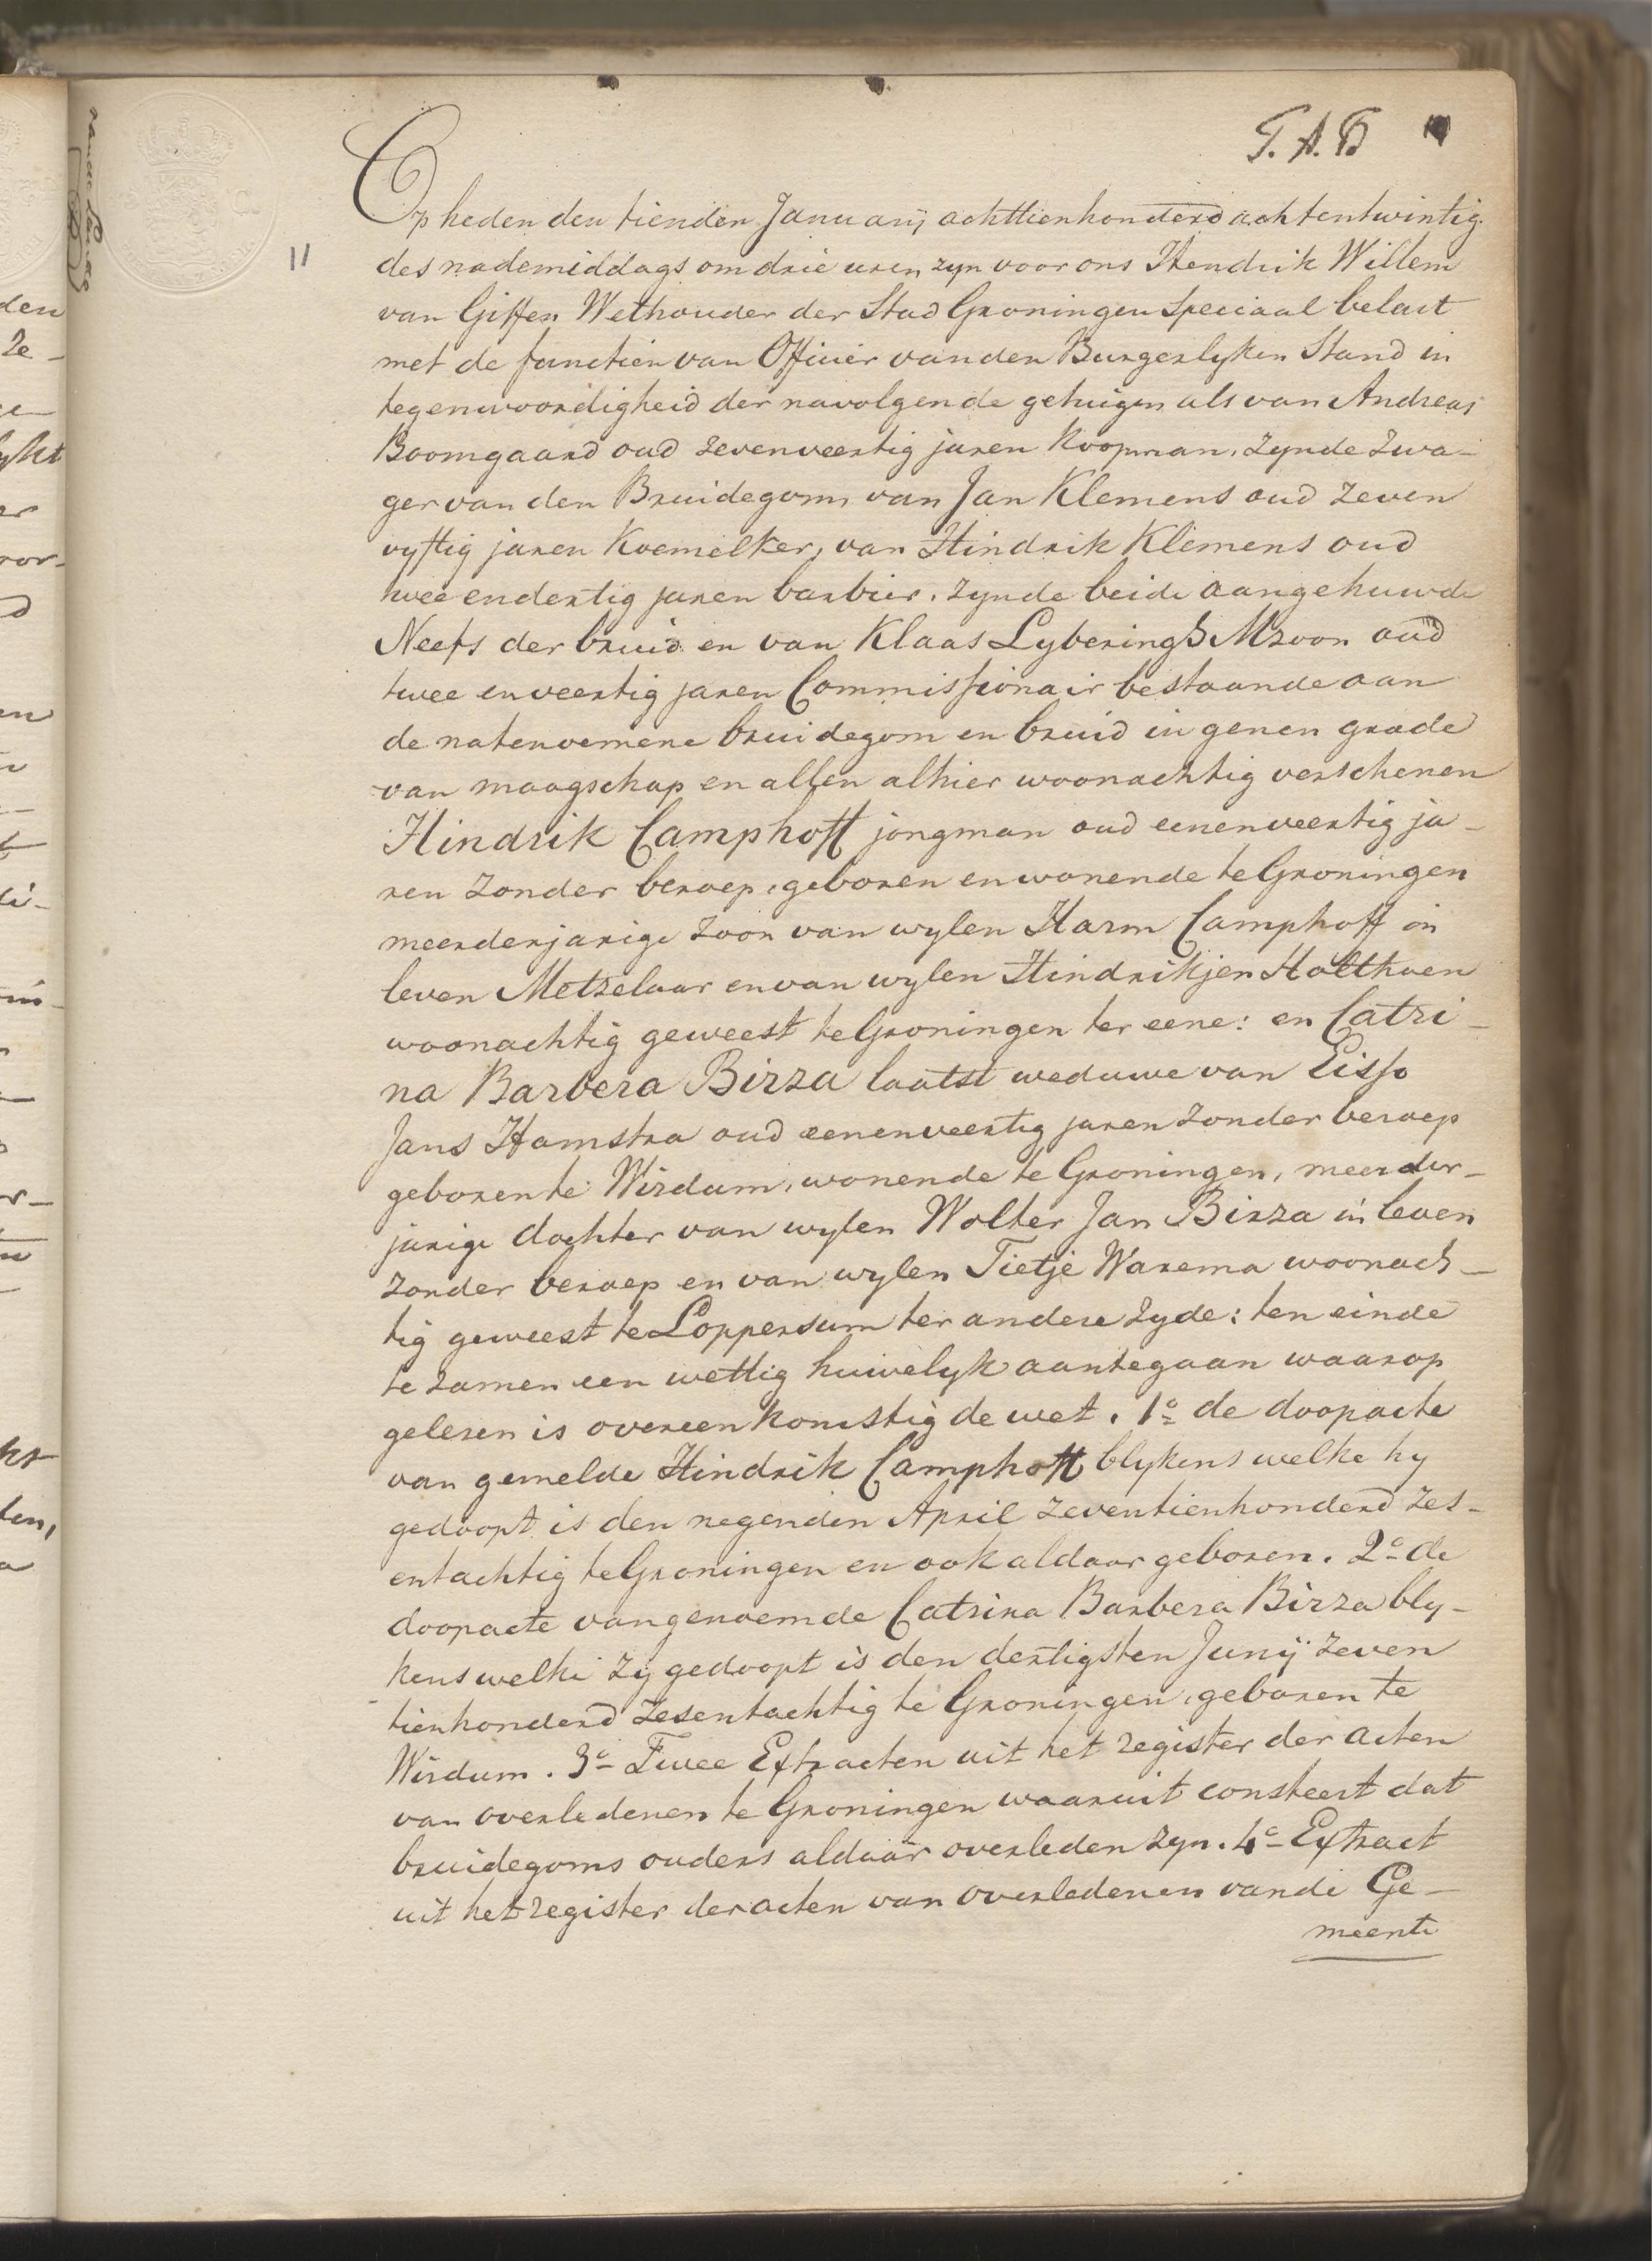 T. A. B
11
Op heden den tienden Januarij achttienhonderd achtentwintig
des nademiddags om drie uren zyn voor ons Hendrik Willem
van Giffen Wethouder der Stad Groningen Speciaal belast
met de functien van Officier van den Burgerlyken Stand in
tegenwoordigheid der navolgende getuigen als van Andreas
Boomgaard oud zevenveertig jaren Koopman, zynde Zwa-
ger van den Bruidegom, van Jan Klemens oud zeven
vyftig jaren Koemelker, van Hindrik Klemens oud
twee endertig jaren barbier, zynde beide aangehuwde
Neefs der bruid en van Klaas Lyberings Mzoon oud
twee enveertig jaren Commissionair bestaande aan
de natenoemene bruidegom en bruid in genen grade
van maagschap en allen alhier woonachtig verschenen
Hindrik Camphoff jongman oud eenenveertig ja-
ren zonder beroep, geboren en wonende te Groningen
meerderjarige zoon van wylen Harm Camphoff in
leven Metzelaar en van wylen Hindrikjen Holthuen
woonachtig geweest te Groningen ter eene: en Catri-
na Barbera Birza laatst weduwe van Eisso
Jans Hamstra oud eenenveertig jaren zonder beroep
geboren te Wirdum, wonende te Groningen, meerder-
jarige dochter van wylen Wolter Jan Birza in leven
zonder beroep en van wylen Tietje Warema woonach-
tig geweest te Loppersum ter andere zyde: ten einde
te zamen een wettig huwelyk aantegaan waarop
gelezen is overeenkomstig de wet. 1o de doopacte
van gemelde Hindrik Camphoff blykens welke hy
gedoopt is den negenden April zeventienhonderd zes-
entachtig te Groningen en ook aldaar geboren. 2o de
doopacte van genoemde Catrina Barbera Birza bly-
kens welke zij gedoopt is den dertigsten Junij zeven
tienhonderd zesentachtig te Groningen, geboren te
Wirdum. 3o Twee Extracten uit het register der acten
van overledenen te Groningen waaruit consteert dat
bruidegoms ouders aldaar overleden zyn. 4o Extract
uit het register der acten van overledenen van de Ge-
meente